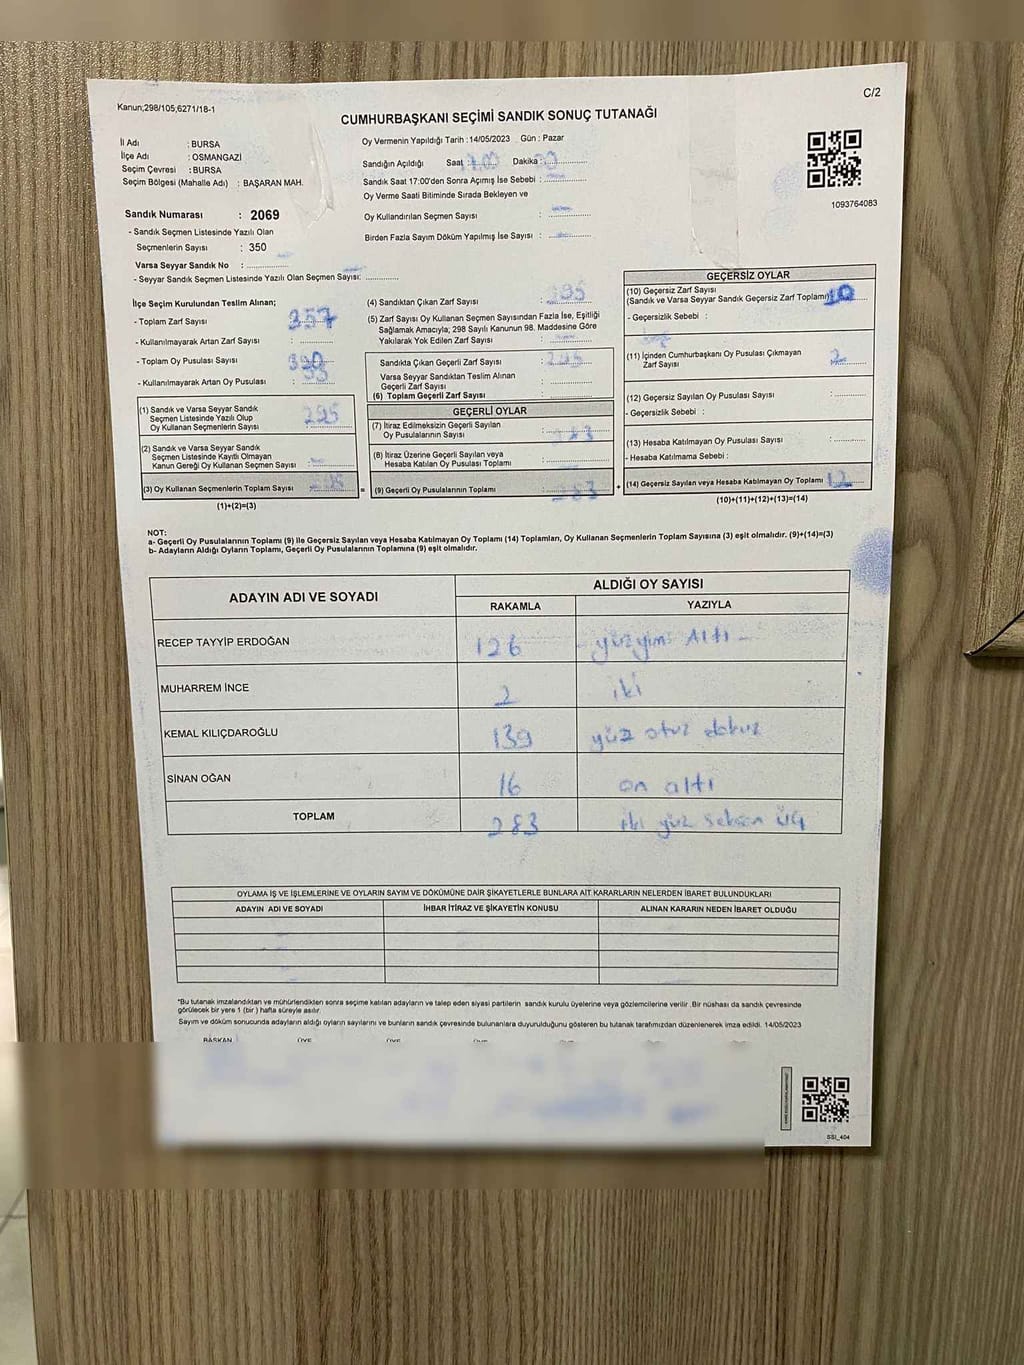 C/2
Kanun;298/105,6271/18-1
CUMHURBAŞKANI SEÇİMİ SANDIK SONUÇ TUTANAĞI
İl Adı : BURSA
İlçe Adı : OSMANGAZİ
Seçim Çevresi : BURSA
Seçim Bölgesi (Mahalle Adı) : BAŞARAN MAH.
Oy Vermenin Yapıldığı Tarih :14/05/2023 Gün : Pazar
Sandığın Açıldığı Saat : 17.00 Dakika :
Sandık Saat 17:00'den Sonra Açımış İse Sebebi :
Oy Verme Saati Bitiminde Sırada Bekleyen ve
Oy Kullandırılan Seçmen Sayısı :
Birden Fazla Sayım Döküm Yapılmış İse Sayısı :
1093764083
Sandık Numarası : 2069
- Sandık Seçmen Listesinde Yazılı Olan
Seçmenlerin Sayısı : 350
Varsa Seyyar Sandık No :
- Seyyar Sandık Seçmen Listesinde Yazılı Olan Seçmen Sayısı:
İlçe Seçim Kurulundan Teslim Alınan;
- Toplam Zarf Sayısı : 357
- Kullanılmayarak Artan Zarf Sayısı :
- Toplam Oy Pusulası Sayısı :
- Kullanılmayarak Artan Oy Pusulası :
(1) Sandık ve Varsa Seyyar Sandık
Seçmen Listesinde Yazılı Olup
Oy Kullanan Seçmenlerin Sayısı : 295
(2) Sandık ve Varsa Seyyar Sandık
Seçmen Listesinde Kayıtlı Olmayan
Kanun Gereği Oy Kullanan Seçmen Sayısı :
(3) Oy Kullanan Seçmenlerin Toplam Sayısı : 295
(1)+(2)=(3)
(4) Sandıktan Çıkan Zarf Sayısı : 295
(5) Zarf Sayısı Oy Kullanan Seçmen Sayısından Fazla İse, Eşitliği
Sağlamak Amacıyla; 298 Sayılı Kanunun 98. Maddesine Göre
Yakılarak Yok Edilen Zarf Sayısı :
Sandıkta Çıkan Geçerli Zarf Sayısı :
Varsa Seyyar Sandıktan Teslim Alınan
Geçerli Zarf Sayısı :
(6) Toplam Geçerli Zarf Sayısı :
GEÇERLİ OYLAR
(7) İtiraz Edilmeksizin Geçerli Sayılan
Oy Pusulalarının Sayısı : 283
(8) İtiraz Üzerine Geçerli Sayılan veya
Hesaba Katılan Oy Pusulası Toplamı :
(9) Geçerli Oy Pusulalarının Toplamı : 283
GEÇERSİZ OYLAR
(10) Geçersiz Zarf Sayısı
(Sandık ve Varsa Seyyar Sandık Geçersiz Zarf Toplamı) 10
- Geçersizlik Sebebi :
(11) İçinden Cumhurbaşkanı Oy Pusulası Çıkmayan
Zarf Sayısı : 2
(12) Geçersiz Sayılan Oy Pusulası Sayısı :
- Geçersizlik Sebebi :
(13) Hesaba Katılmayan Oy Pusulası Sayısı :
- Hesaba Katılmama Sebebi :
(14) Geçersiz Sayılan veya Hesaba Katılmayan Oy Toplamı 12
(10)+(11)+(12)+(13)=(14)
NOT:
a- Geçerli Oy Pusulalarının Toplamı (9) ile Geçersiz Sayılan veya Hesaba Katılmayan Oy Toplamı (14) Toplamları, Oy Kullanan Seçmenlerin Toplam Sayısına (3) eşit olmalıdır. (9)+(14)=(3)
b- Adayların Aldığı Oyların Toplamı, Geçerli Oy Pusulalarının Toplamına (9) eşit olmalıdır.
ADAYIN ADI VE SOYADI ALDIĞI OY SAYISI
RAKAMLA YAZIYLA
RECEP TAYYİP ERDOĞAN 126 yüzyirmi Altı
MUHARREM İNCE 2 iki
KEMAL KILIÇDAROĞLU 139 yüz otuz dokuz
SİNAN OĞAN 16 on altı
TOPLAM 283 iki yüz seksen üç
OYLAMA İŞ VE İŞLEMLERİNE VE OYLARIN SAYIM VE DÖKÜMÜNE DAİR ŞİKAYETLERLE BUNLARA AİT KARARLARIN NELERDEN İBARET BULUNDUKLARI
ADAYIN ADI VE SOYADI İHBAR İTİRAZ VE ŞİKAYETİN KONUSU ALINAN KARARIN NEDEN İBARET OLDUĞU
*Bu tutanak imzalandıktan ve mühürlendikten sonra seçime katılan adayların ve talep eden siyasi partilerin sandık kurulu üyelerine veya gözlemcilerine verilir .Bir nüshası da sandık çevresinde
görülecek bir yere 1 (bir ) hafta süreyle asılır.
Sayım ve döküm sonucunda adayların aldığı oyların sayılarını ve bunların sandık çevresinde bulunanlara duyurulduğunu gösteren bu tutanak tarafımızdan düzenlenerek imza edildi. 14/05/2023
BAŞKAN ÜYE ÜYE ÜYE
SSI_404